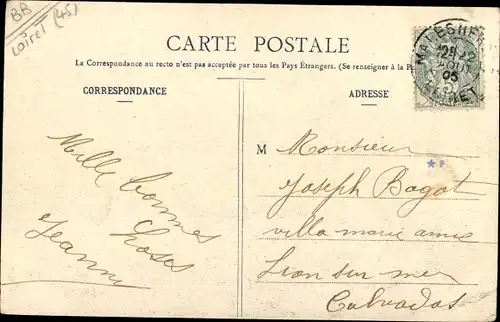 BB
Loiret (45)
CARTE POSTALE
La Correspondance au recto n'est pas acceptée par tous les Pays Étrangers. (Se renseigner à la P
CORRESPONDANCE
ADRESSE
MALESHER
LOIRET
05
Mille bonnes
choses
Jeanne
M Monsieur
Joseph Bagot
villa marie anne
Lion sur mer
Calvados